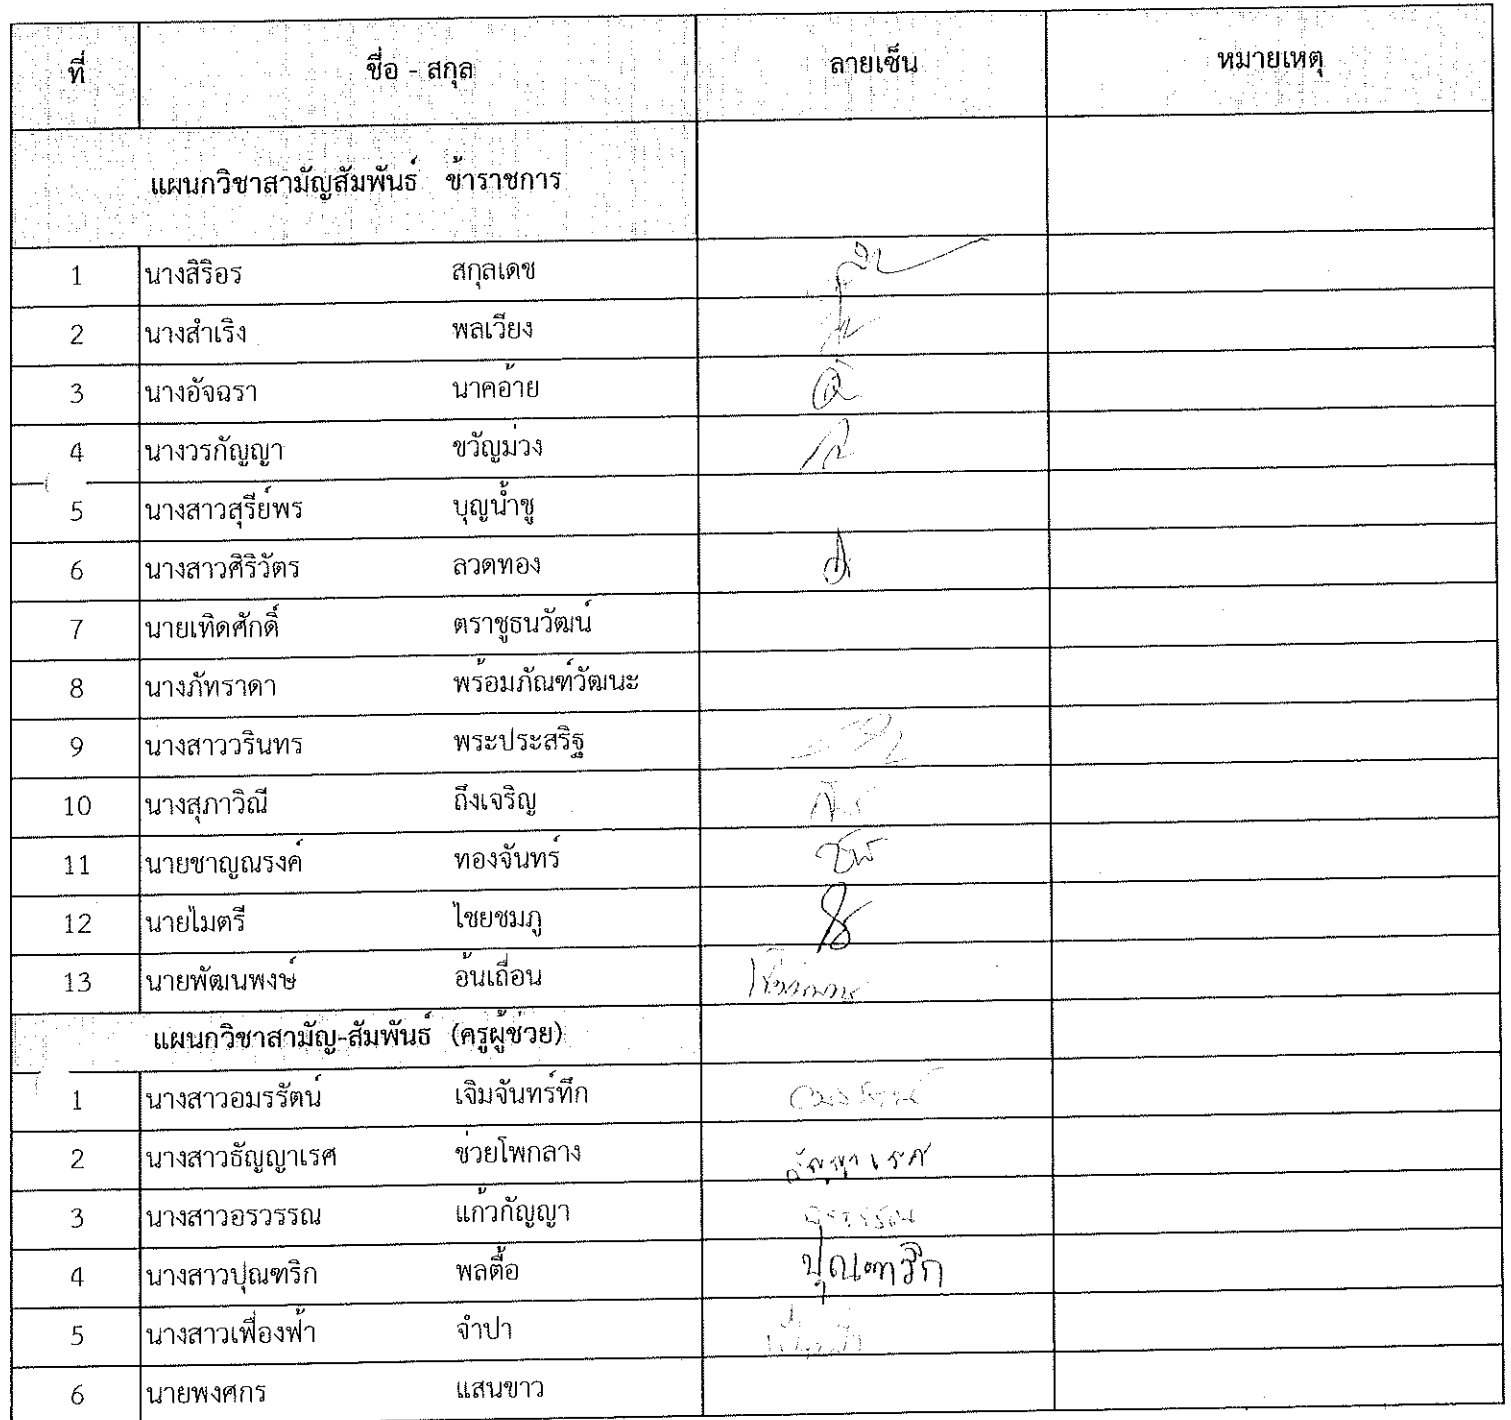 ที่ ชื่อ - สกุล ลายเซ็น หมายเหตุ
แผนกวิชาสามัญสัมพันธ์ ข้าราชการ
1 นางสิริอร สกุลเดช
2 นางสำเริง พลเวียง
3 นางอัจฉรา นาคอ้าย
4 นางวรกัญญา ขวัญม่วง
5 นางสาวสุรีย์พร บุญน้ำชู
6 นางสาวศิริวัตร ลวดทอง
7 นายเทิดศักดิ์ ตราชูธนวัฒน์
8 นางภัทราดา พร้อมภัณฑ์วัฒนะ
9 นางสาววรินทร พระประสริฐ
10 นางสุภาวิณี ถึงเจริญ
11 นายชาญณรงค์ ทองจันทร์
12 นายไมตรี ไชยชมภู
13 นายพัฒนพงษ์ อ้นเถื่อน
แผนกวิชาสามัญ-สัมพันธ์ (ครูผู้ช่วย)
1 นางสาวอมรรัตน์ เจิมจันทร์ทึก
2 นางสาวธัญญาเรศ ช่วยโพกลาง ธัญญาเรศ
3 นางสาวอรวรรณ แก้วกัญญา อรวรรณ
4 นางสาวปุณฑริก พลตื้อ ปุณฑริก
5 นางสาวเฟื่องฟ้า จำปา
6 นายพงศกร แสนขาว